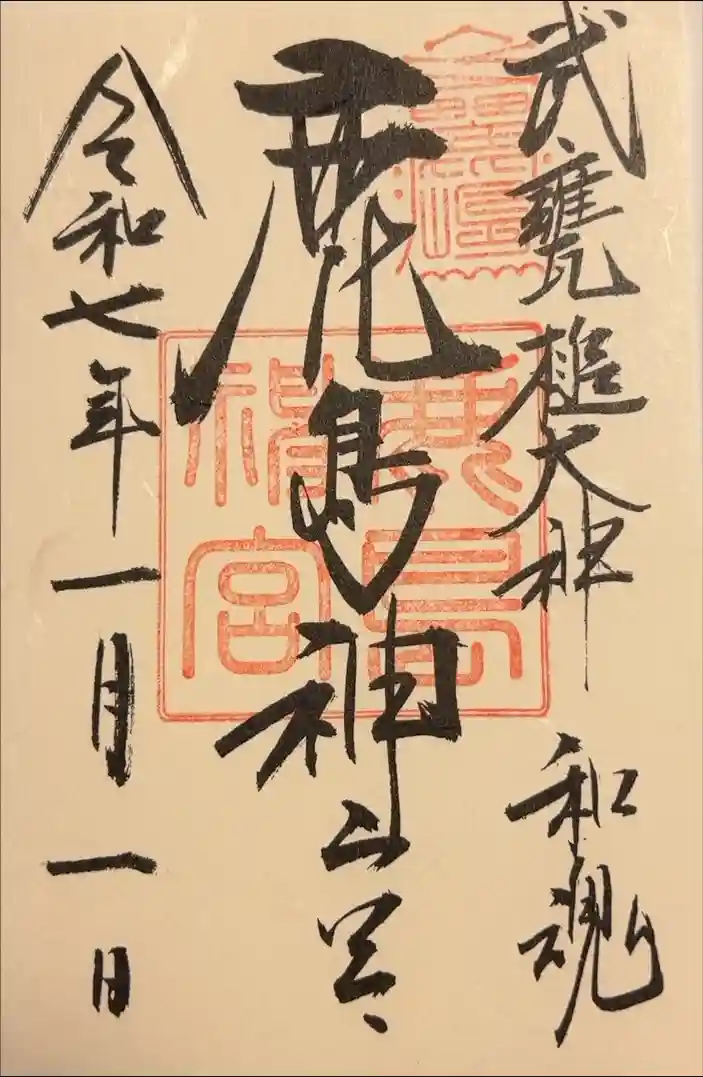 武甕槌大神 和魂
鹿島神宮
鹿島神宮
令和七年一月一日